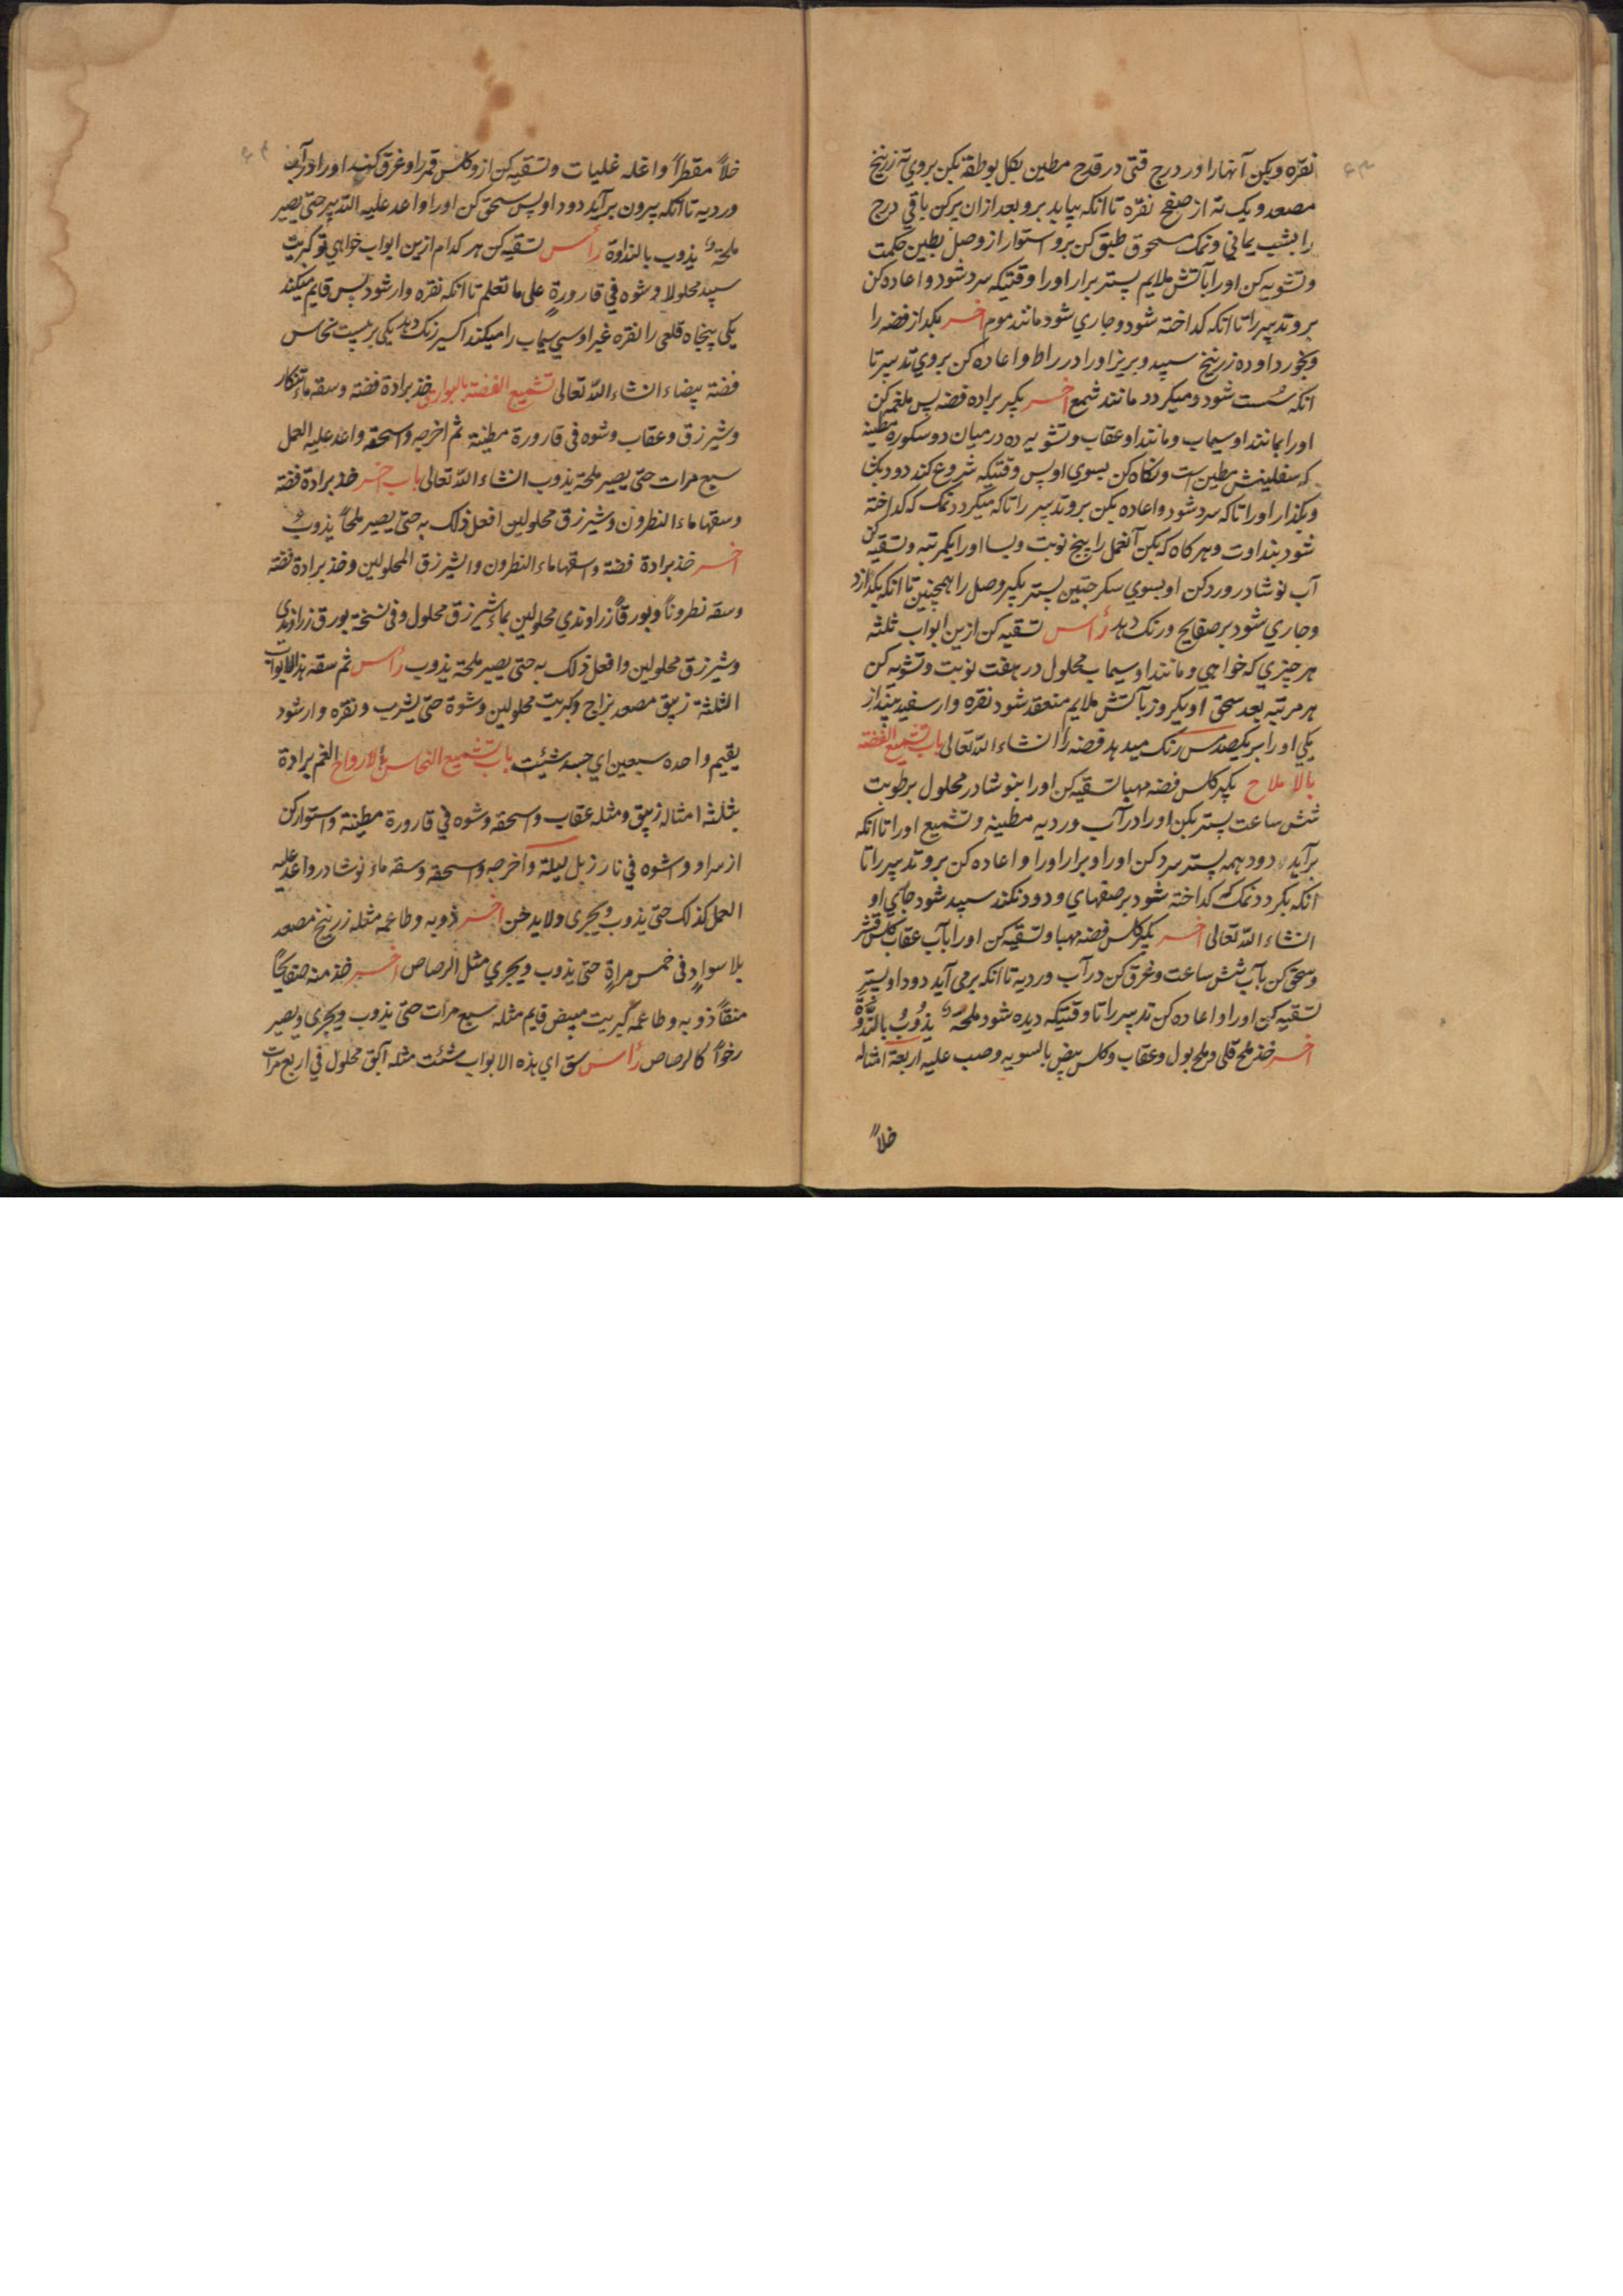 نقره و بکن آنها را در درج قتی در قدح مطین بکل بوطقه بکن بروی ته زرنیخ
مصعد و یک ته از صفح نقره تا انکه بیاید برو بعد ازان پرکن باقی درج
را بشب یمانی و نمک مسحوق طبق کن برو استوار از وصل بطین حکمت
و تشویه کن اورا بآتش ملایم پستر برار اورا وقتیکه سرد شود و اعاده کن
برو تدبیر را تا انکه کداخته شود و جاری شود مانند موم اخر بکداز فضه را
و بخورد او ده زرنیخ سپید و بریز اورا در راط و اعاده کن بروی تدبیر تا
انکه سست شود و میکردد مانند شمع اخر بکیر براده فضه پس ملغمه کن
اورا بمانند او سیماب و مانند او عقاب و تشویه ده در میان دو سکوره مطینه
که سفلینش مطین است و نکاه کن بسوی او پس وقتیکه شروع کند دود بکن
و بکذار اورا تا که سرد شود و اعاده بکن برو تدبیر را تا که میکردد نمک که کداخته
شود بنداوت و هرکاه که بکن آنعمل را پنج نوبت و بسا اورا یکمرتبه و تسقیه کن
آب نوشادر ورد کن او بسوی سکرجتین پستر بکیر وصل را همچنین تا انکه بکدازد
و جاری شود بر صفایح و رنک دهد رأس تسقیه کن ازین ابواب ثلثه
هر چیزی که خواهی و مانند او سیماب محلول در هفت نوبت و تشویه کن
هر مرتبه بعد سحق او یکروز بآتش ملایم منعقد شود نقره وار سفید بینداز
یکی اورا بر یکصد مس رنک میدهد فضه را انشاء الله تعالی باب تشمیع الفضة
بالاملاح بکیر کلس فضه مهیا تسقیه کن اورا بنوشادر محلول برطوبت
شش ساعت پستر بکن اورا در آب وردیه مطینه و تشمیع اورا تا انکه
برآید دود همه پستر سرد کن اورا و برار اورا و اعاده کن برو تدبیر را تا
انکه بکردد نمک که کداخته شود بر صفهای و دود نکند سپید شود حامی او
انشاء الله تعالی اخر بکیر کلس فضه مهیا و تسقیه کن اورا بآب عقاب کلس قشر
و سحق کن بآب شش ساعت و غرق کن در آب وردیه تا انکه برمی آید دود او پستر
تسقیه کن اورا و اعاده کن تدبیر را تا وقتیکه دیده شود ملحة یذوب بالندوة
اخر خذ ملح قلی و ملح بول و عقاب و کلس بیض بالسویه و صب علیه اربعة امثاله
خلاً
خلاً مقطراً و اغله غلیات و تسقیه کن ازو کلس قمر را و غرق کنند اورا در آب
وردیه تا انکه بیرون برآید دود او پس سحق کن اورا و اعد علیه التدبیر حتی یصیر
ملحة یذوب بالنداوة رأس تسقیه کن هر کدام ازین ابواب خواهی تو کبریت
سپید محلولا و شوه فی قارورة علی ما تعلم تا انکه نقره وار شود پس قایم میکند
یکی پنجاه قلعی را نقره غیر او سی سیماب را میکند اکسیر رنک دهد یکی بر بیست نحاس
فضة بیضاء انشاء الله تعالی تشمیع الفضة بالبوارق خذ برادة فضة و سقه ماء تنکار
و شیرزق و عقاب و شوه فی قارورة مطینة ثم اخرجه و اسحقه و اعد علیه العمل
سبع مرات حتی یصیر ملحة یذوب انشاء الله تعالی باب اخر خذ برادة فضة
و سقها ماء النطرون و شیرزق محلولین افعل ذلک به حتی یصیر ملحاً یذوب
اخر خذ برادة فضة و اسقها ماء النطرون و الشیرزق المحلولین و خذ برادة فضة
و سقه نطروناً و بورقاً زراوندی محلولین بماء شیرزق محلول و فی نسخة بورق زراوندی
و شیرزق محلولین و افعل ذلک به حتی یصیر ملحة یذوب رأس ثم سقه هذه الابواب
الثلثة زیبق مصعد بزاج و کبریت محلولین و شوة حتی یشرب و نقره وار شود
یقیم واحده سبعین ای جسد شئت باب تشمیع النحاس بالارواح الغم برادة
بثلثة امثاله زیبق و مثله عقاب و اسحقه و شوه فی قارورة مطینة و استوار کن
از سر او و اشوه فی نار زبل لیلة و اخرجه و اسحقه و سقه ماء نوشادر و اعد علیه
العمل کذلک حتی یذوب و یجری و لا یدخن اخر ذوبه و طاعمه مثله زرنیخ مصعد
بلا سواد فی خمس مراة حتی یذوب و یجری مثل الرصاص اخر خذ منه صفایحاً
منقاً ذوبه و طاعمه کبریت مبیض قایم مثله سبع مرات حتی یذوب و یجری و یصیر
رخواً کالرصاص رأس سق ای هذه الابواب شئت مثله آبق محلول فی اربع مرات